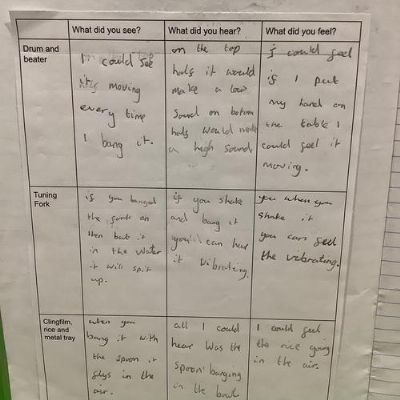 What did you see?
What did you hear?
What did you feel?
Drum and
beater
I could see
its moving
every time
I bang it.
on the top
half it would
make a low
sound on bottom
half would make
a high sound
I could feel
if I put
my hand on
the table I
could feel it
moving.
Tuning
Fork
if you banged
the fork on
then but it
in the water
it will spit
up.
if you shake
and bang it
you can hear
it vibrating.
you when you
shake it
you can feel
the vibrating.
Clingfilm,
rice and
metal tray
when you
bang it with
the spoon it
flys in the
air.
all I could
hear was the
spoon banging
in the bowl
I could feel
the rice going
in the air.